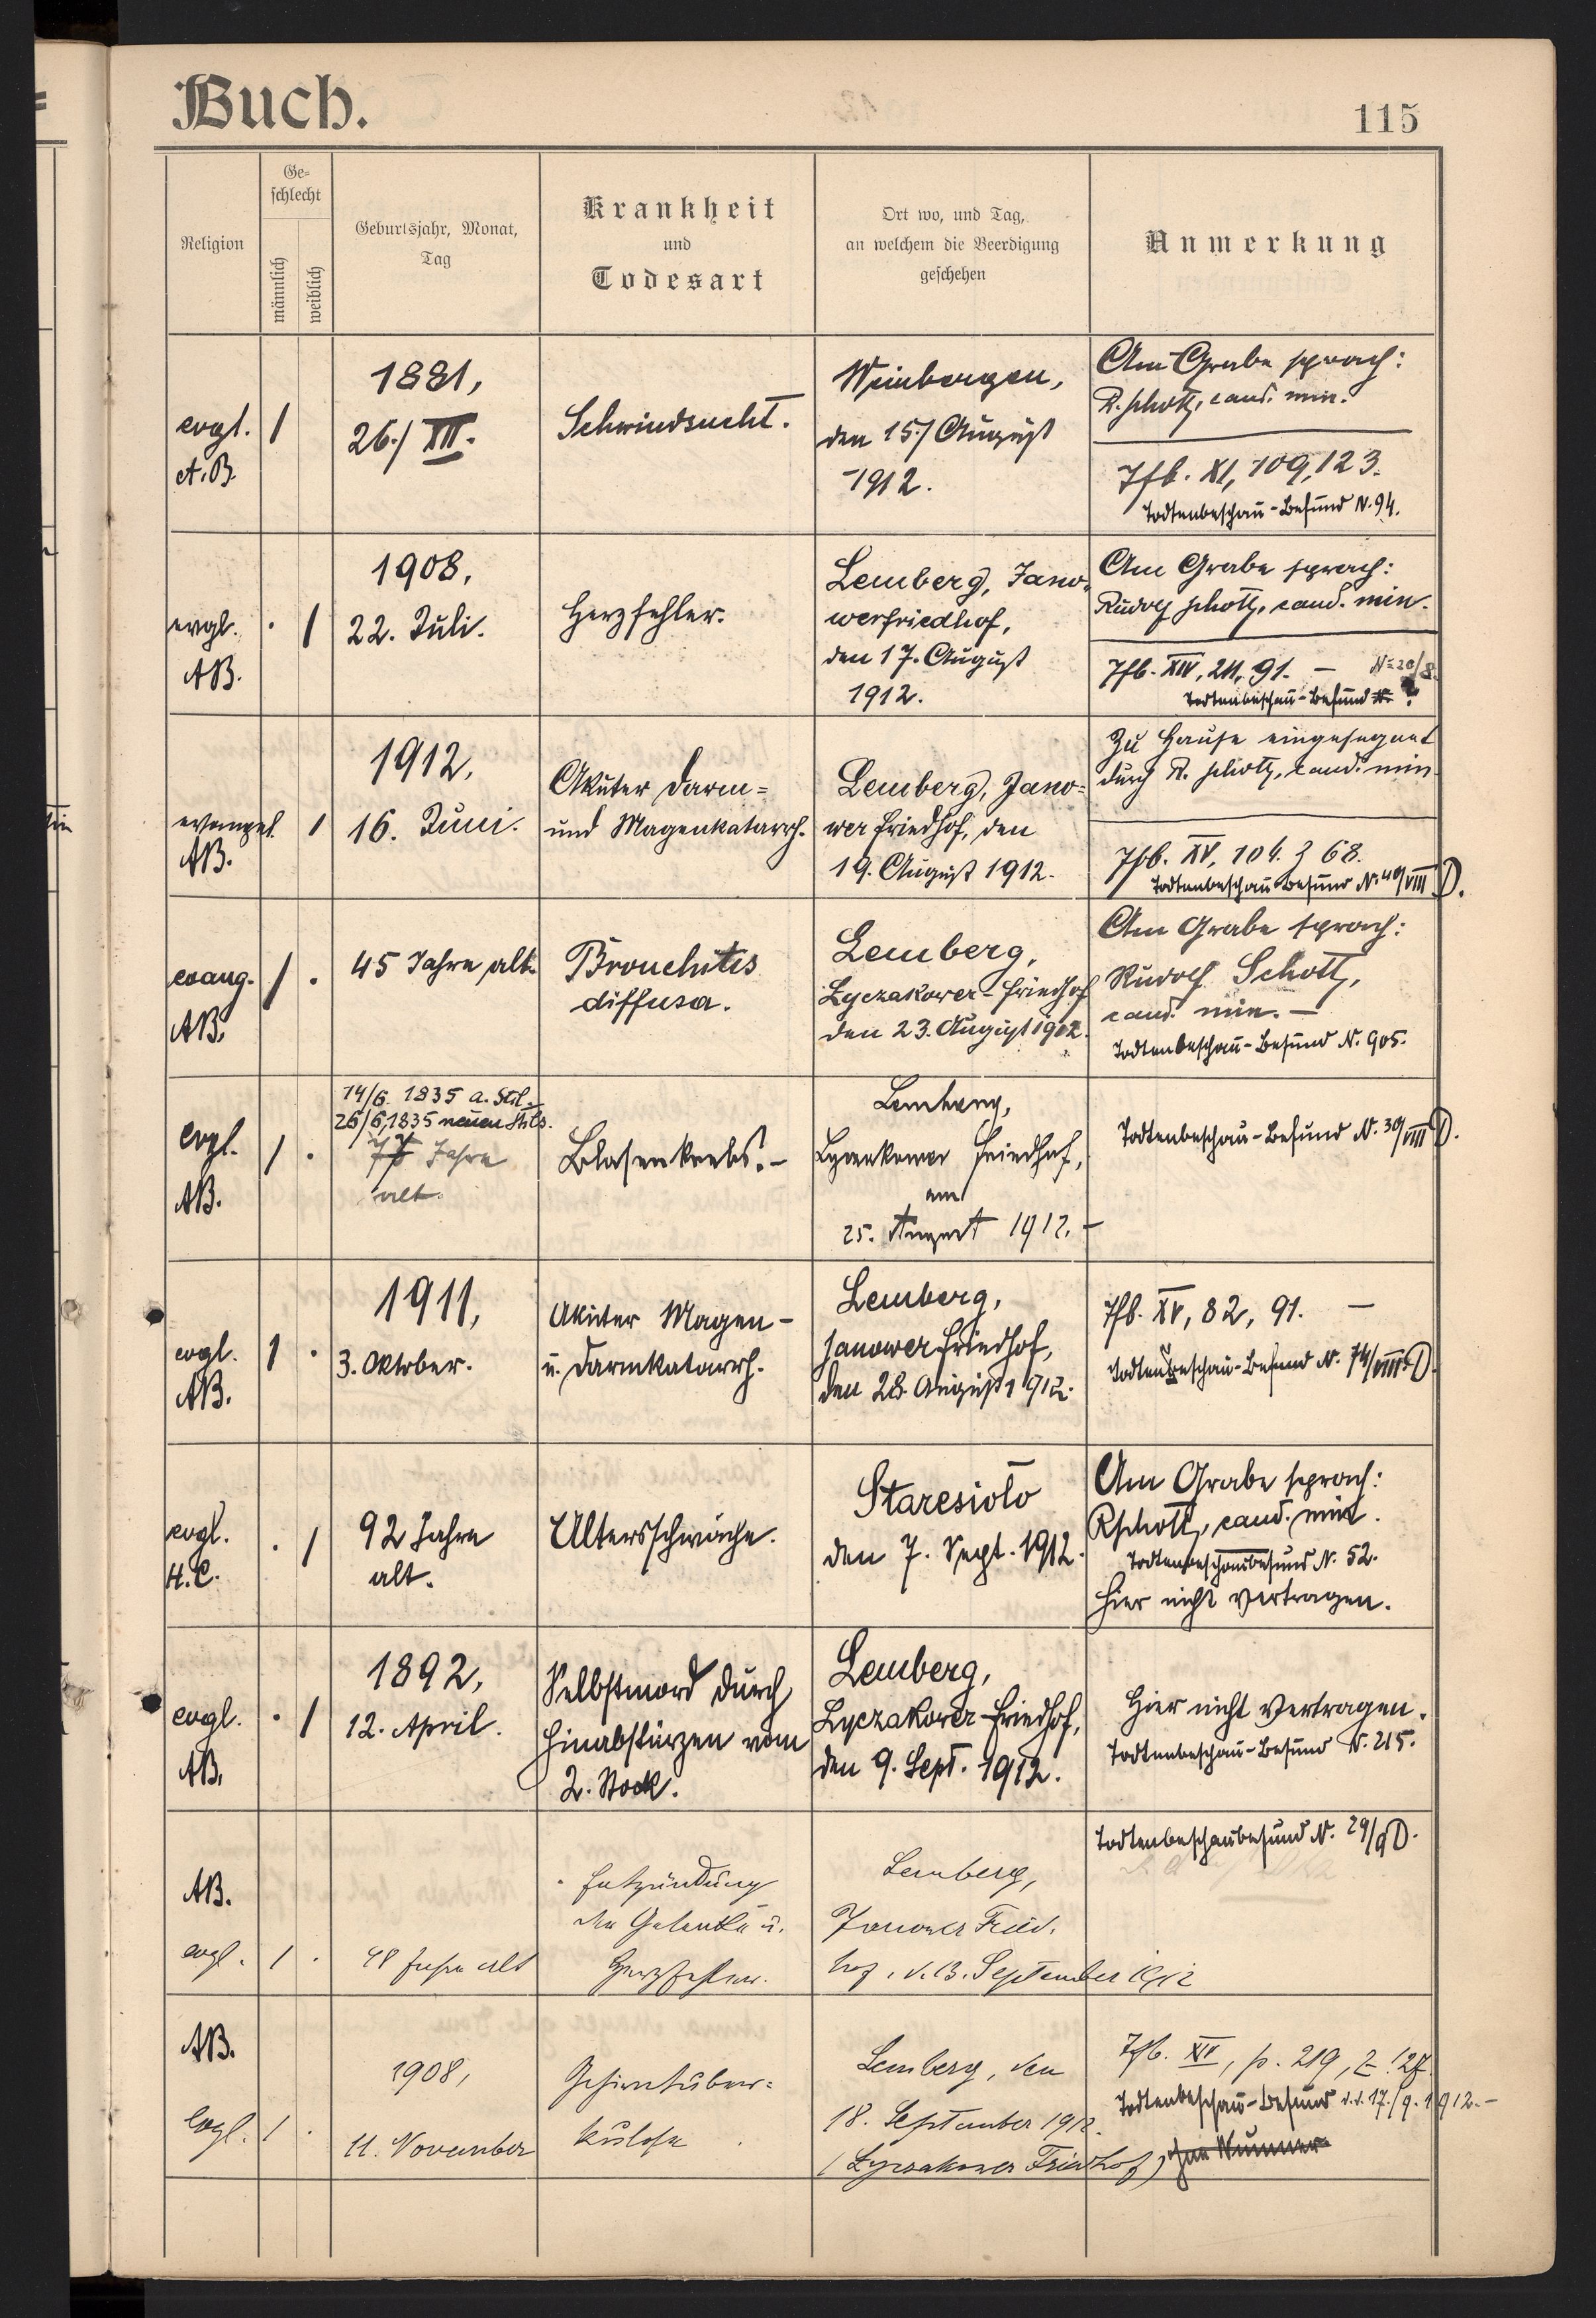 Buch.
115
Religion
Ge-
schlecht
männlich
weiblich
Geburtsjahr, Monat,
Tag
Krankheit
und
Todesart
Ort wo, und Tag,
an welchem die Beerdigung
geschehen
Anmerkung
evgl.
A.B.
1
1881,
26./XII.
Schwindsucht.
Weinbergen,
den 15./August
1912.
Am Grabe sprach:
R. Schott, cand. min.
Tfb. XI, 109, 123.
Todtenbeschau-Befund N. 94.
evgl.
AB.
. 1
1908,
22. Juli.
Herzfehler.
Lemberg, Jano-
werfriedhof,
den 17. August
1912.
Am Grabe sprach:
Rudolf Schott, cand. min.
Tfb. XIV, 211, 91. —
N= 20/8.
Todtenbeschau-Befund N. ?
evangel.
AB.
1
1912,
16. Juni.
Akuter Darm=
und Magenkatarrh.
Lemberg, Jano=
wer Friedhof, den
19. August 1912.
Zu Hause eingesegnet
durch R. Schott, cand. min.
Tfb. XV, 104. Z 68.
Todtenbeschau Befund N. 40/VIII D.
evang.
AB.
1 .
45 Jahre alt.
Bronchitis
diffusa.
Lemberg,
Lyczakower-Friedhof
den 23. August 1912.
Am Grabe sprach:
Rudolf Schott,
cand. min. —
Todtenbeschau-Befund N. 905.
evgl.
AB.
1 .
14/6. 1835 a. Stil.
26/6, 1835 neuen Stils.
Jahre
alt.
Blasenkrebs. -
Lemberg,
Lyczakower Friedhof,
am
25. August 1912. -
Todtenbeschau-Befund N. 30/VIII D.
evgl.
AB.
1 .
1911,
3. Oktober.
Akuter Magen-
u. Darmkatarrh.
Lemberg,
Janower Friedhof,
den 28. August 1912.
Tfb. XV, 82, 91. —
Todtenbeschau-Befund N. 74/VIII. D.
evgl.
H.C.
. 1
92 Jahre
alt.
Altersschwäche.
Staresioło
den 7. Sept. 1912.
Am Grabe sprach:
R Schott, cand. min.
Todtenbeschaubefund N. 52.
Hier nicht vertragen.
evgl.
AB.
. 1
1892,
12. April.
Selbstmord durch
Hinabstürzen vom
2. Stock.
Lemberg,
Lyczakower-Friedhof,
den 9. Sept. 1912.
Hier nicht vertragen.
Todtenbeschau-Befund N. 215.
AB.
evgl. 1 .
48 Jahre alt
Entzündung
der Gelenke u.
Herzfehler.
Lemberg,
Janower Fried.
hof, d. 13. September 1912
Todtenbeschaubefund N. 29/9 D.
AB.
evgl. 1 .
1908,
11. November
Gehirntuber=
kulose
Lemberg, den
18. September 1912.
(Lyczakower Friedhof)
Tfb. XIV, p. 219, Z. 127.
Todtenbeschau-Befund d. d. 17./9. 1912. -